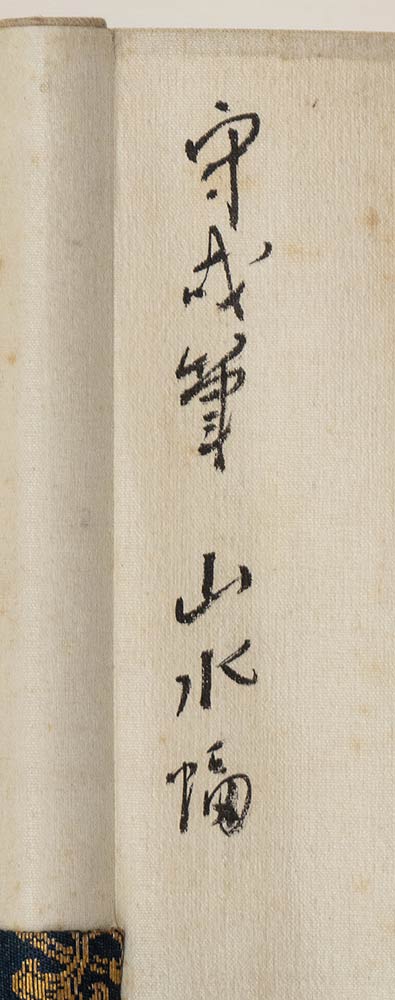 守成筆 山水幅